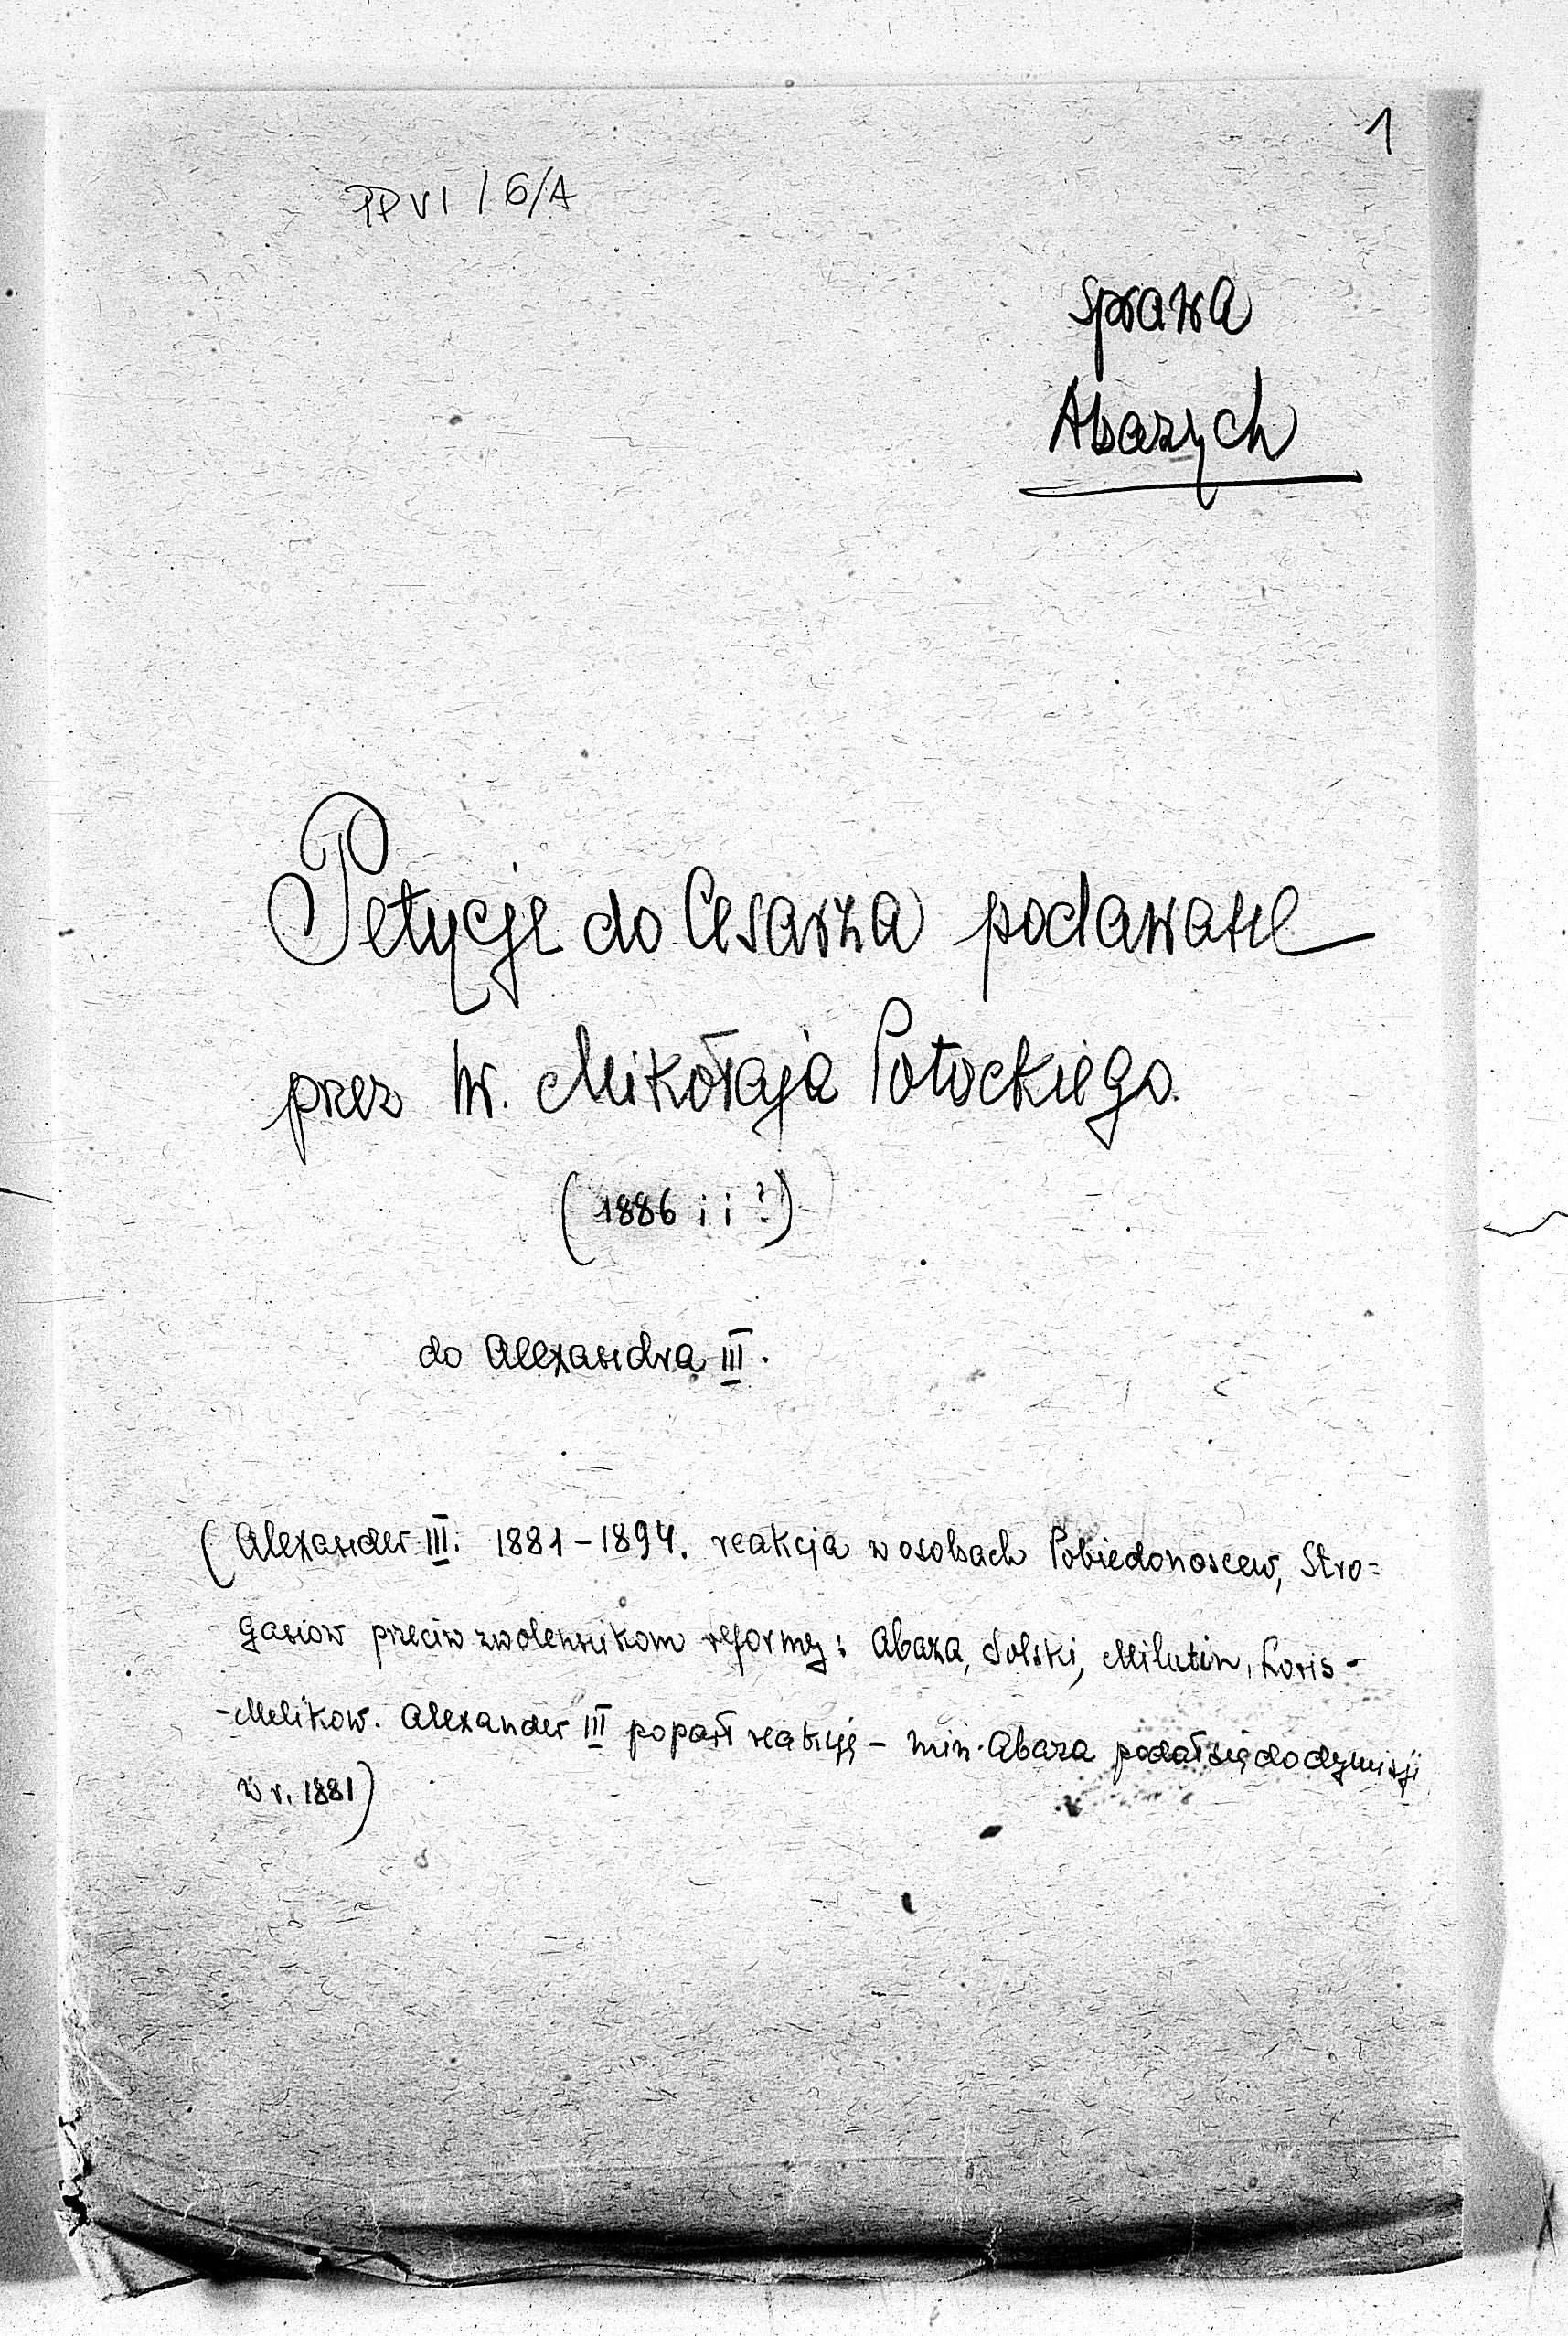 1
PP VI / 6/A
Sprawa
Abazych
Petycje do Cesarza podawane
przez hr. Mikołaja Potockiego.
(1886 i i ?)
do Alexandra III.
(Alexander III. 1881-1894. reakcja w osobach Pobiedonoscew, Stro=
ganow przeciw zwolennikom reformy: Abaza, Solski, Milutin, Loris-
-Melikow. Alexander III poparł reakcję - min. Abaza podał się do dymisji
w r. 1881)